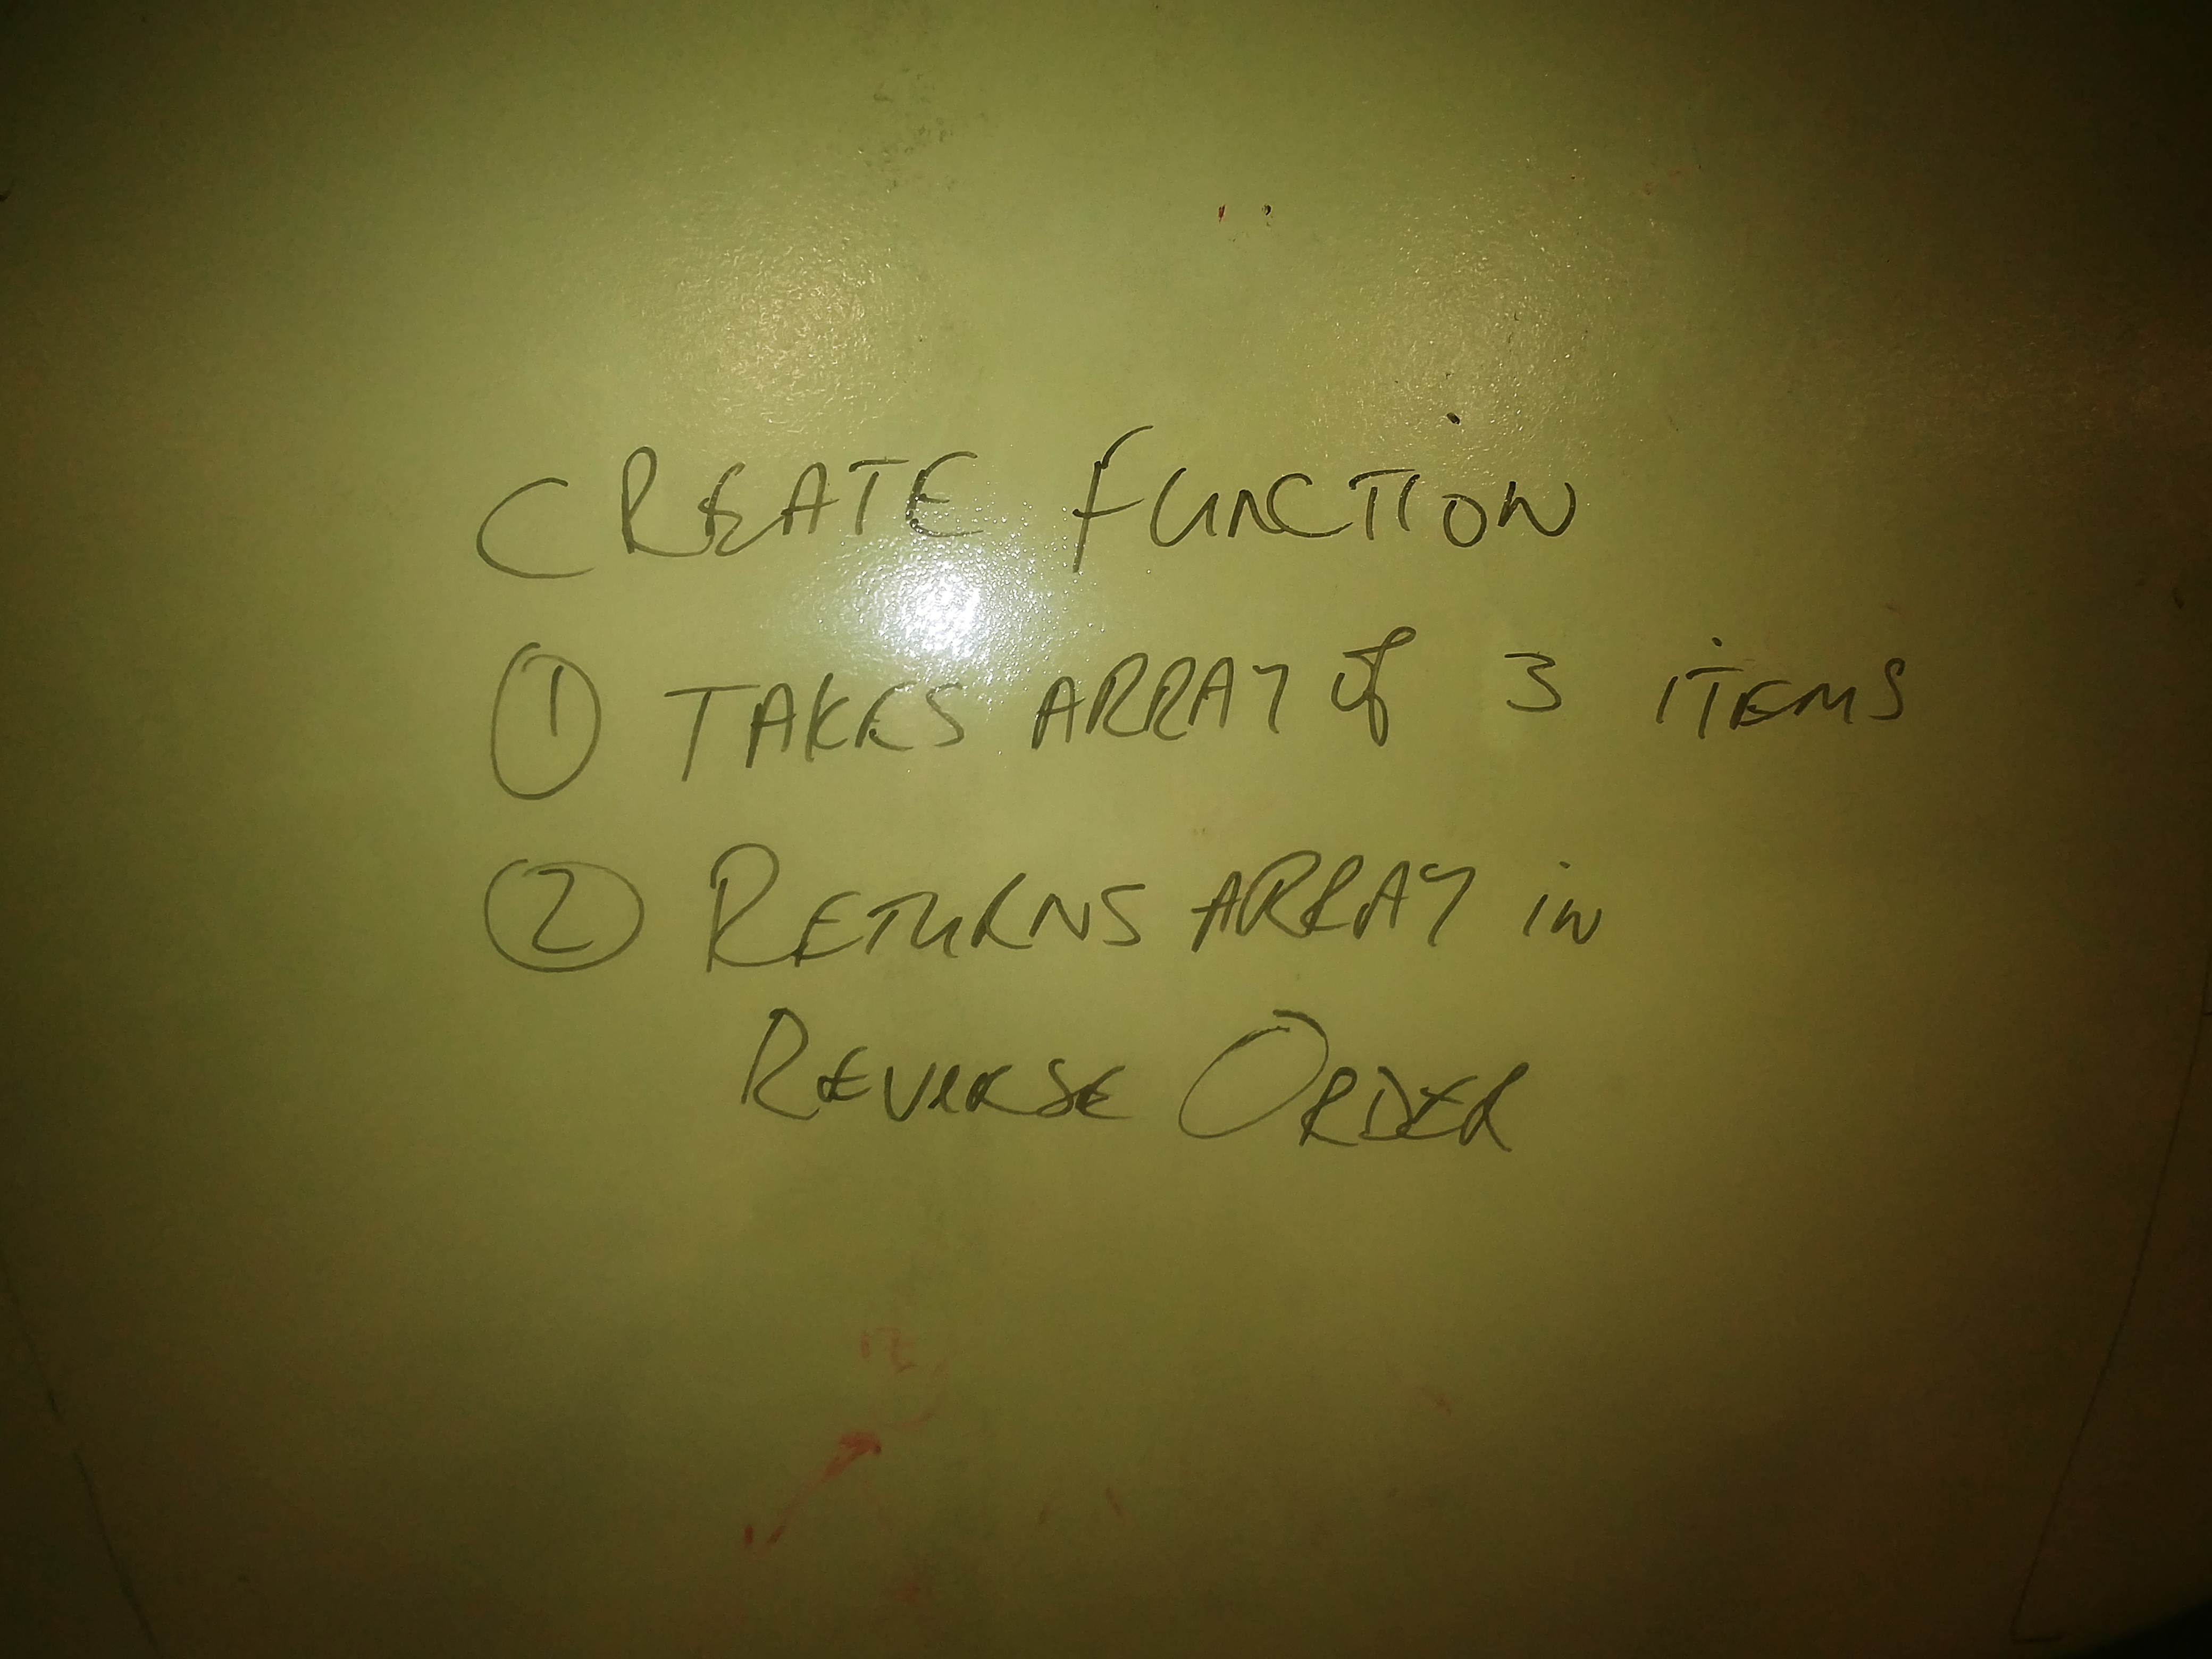 CREATE FUNCTION
① TAKES ARRAY of 3 iTEMS
② RETURNS ARRAY in
REVERSE ORDER